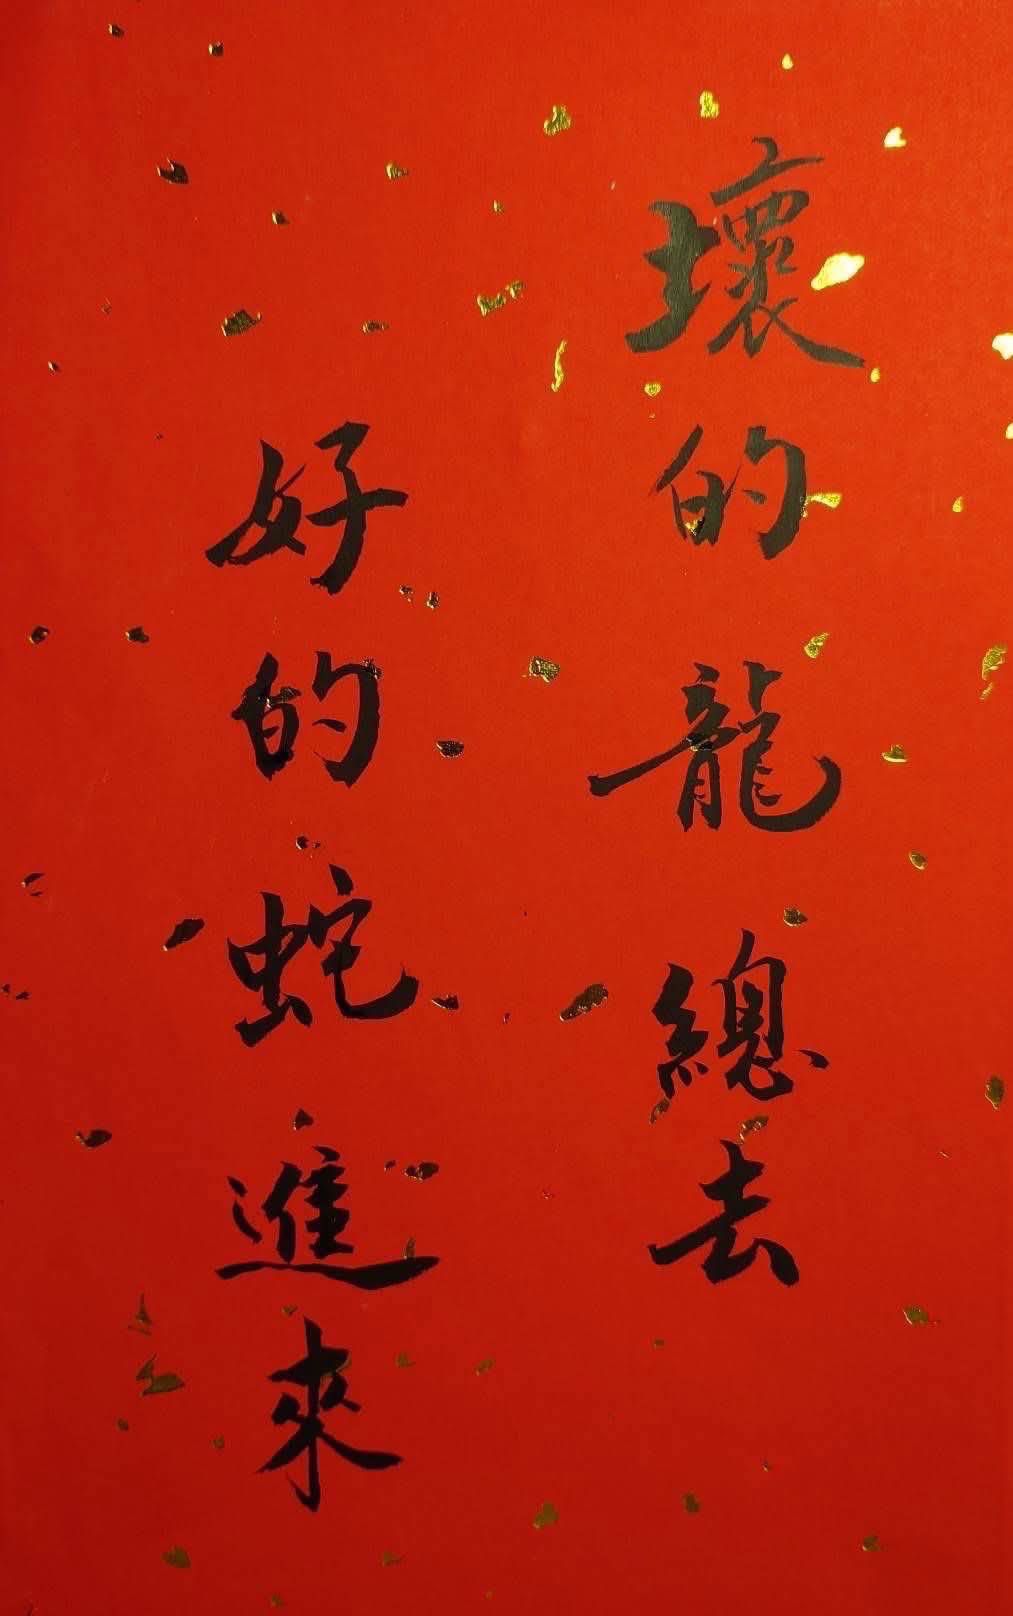 壞的龍總去
好的蛇進來